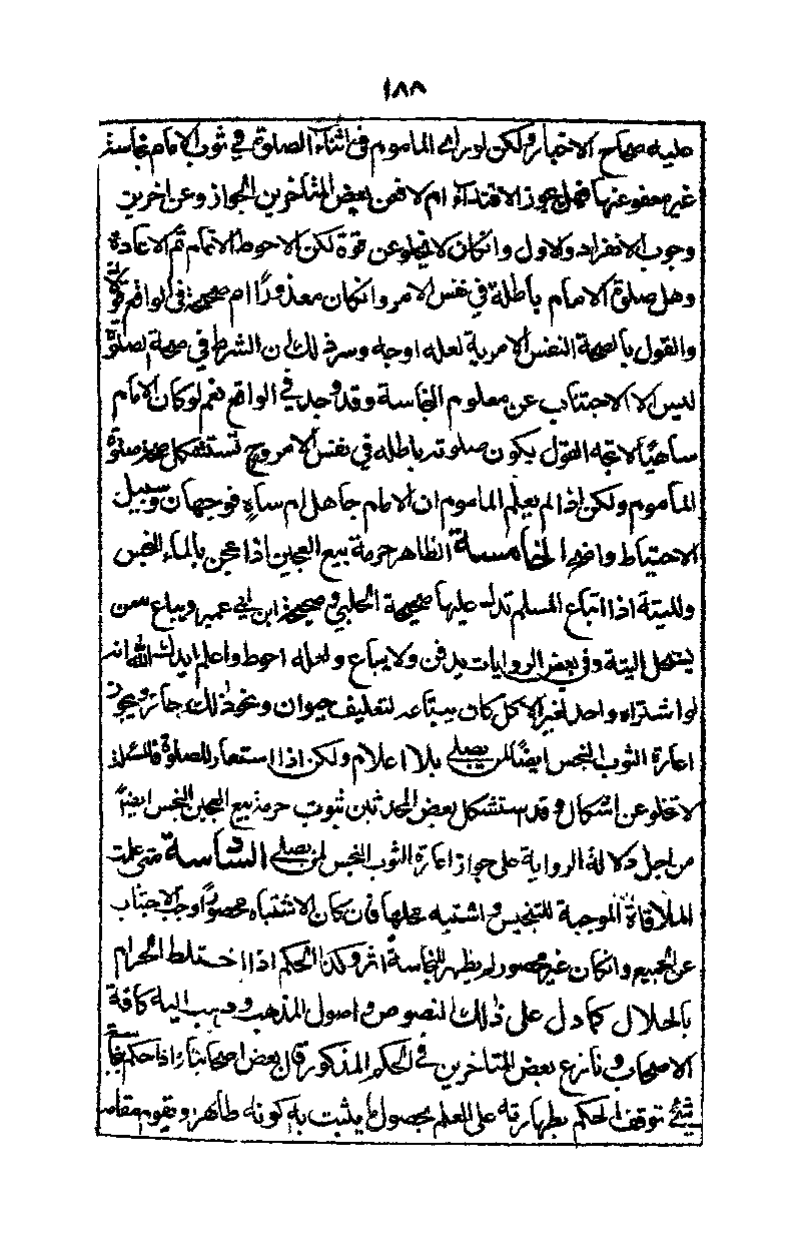 ١٨٨
عليه صحاح الاخبار ولكن لو راى الماموم فى اثناء الصلوة في ثوب الامام نجاسة
غير معفو عنها فهل يجوز الاقتداء ام لا فعن بعض المتاخرين الجواز وعن اخرين
وجوب الانفراد والاول وانكان لا يخلو عن قوة لكن الاحوط الاتمام ثم الاعادة
وهل صلوة الامام باطلة في نفس الامر وانكان معذورًا ام صحيحة فى الواقع قولان
والقول بالصحة النفس الامرية لعله اوجه وسر ذلك ان الشرط في صحة الصلوة
ليس الا الاجتناب عن معلوم النجاسة وقد وجد في الواقع نعم لو كان الامام
ساهيًا لاتجه القول بكون صلوته باطله في نفس الامر وح تستشكل صحة صلوة
الماموم ولكن اذا لم يعلم الماموم ان الامام جاهل ام ساهٍ فوجهان وسبيل
الاحتياط واضح الخامسة الظاهر حرمة بيع العجين اذا عجن بالماء النجس
وللميتة اذا اتباع المسلم تدل عليها صحيحة الحلبي وصحيحة ابن ابي عمير ويباع ممن
يستحل الميتة وفى بعض الروايات يدفن ولا يباع ولعله احوط واعلم ايدك الله انه
لو اشتراه واحد لغير الاكل كان يبتاعه لتعليف حيوان ونحو ذلك جائز ويجوز
اعارة الثوب النجس ايضًا لمن يصلى بلا اعلام ولكن اذا استعار للصلوة فالمسئلة
لا تخلو عن اشكال وقد استشكل بعض المحدثين ثبوت حرمة بيع العجين النجس ايضًا
من اجل دلالة الرواية على جواز اعارة الثوب النجس لمن يصلى السادسة متى علمت
الملاقاة الموجبة للتنجيس واشتبه محلها فان كان الاشتباه محصورًا وجب الاجتناب
عن الجميع وانكان غير محصور لم يظهر للنجاسة اثر وكذا الحكم اذا اختلط الحرام
بالحلال كما دل على ذلك النصوص واصول المذهب وذهب اليه كافة
الاصحاب ونازع بعض المتاخرين في الحكم المذكور قال بعض اصحابنا واذا حكم بنجاسة
شئ توقف الحكم بطهارته على العلم بحصول ما يثبت به كونه طاهر ويقوم مقامه